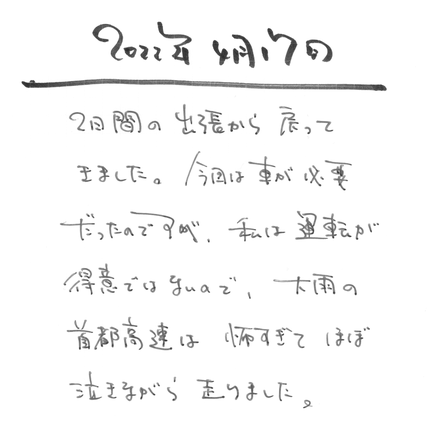 2022年4月17日
2日間の出張から戻って
きました。今回は車が必要
だったのですが、私は運転が
得意ではないので、大雨の
首都高速は怖すぎてほぼ
泣きながら走りました。